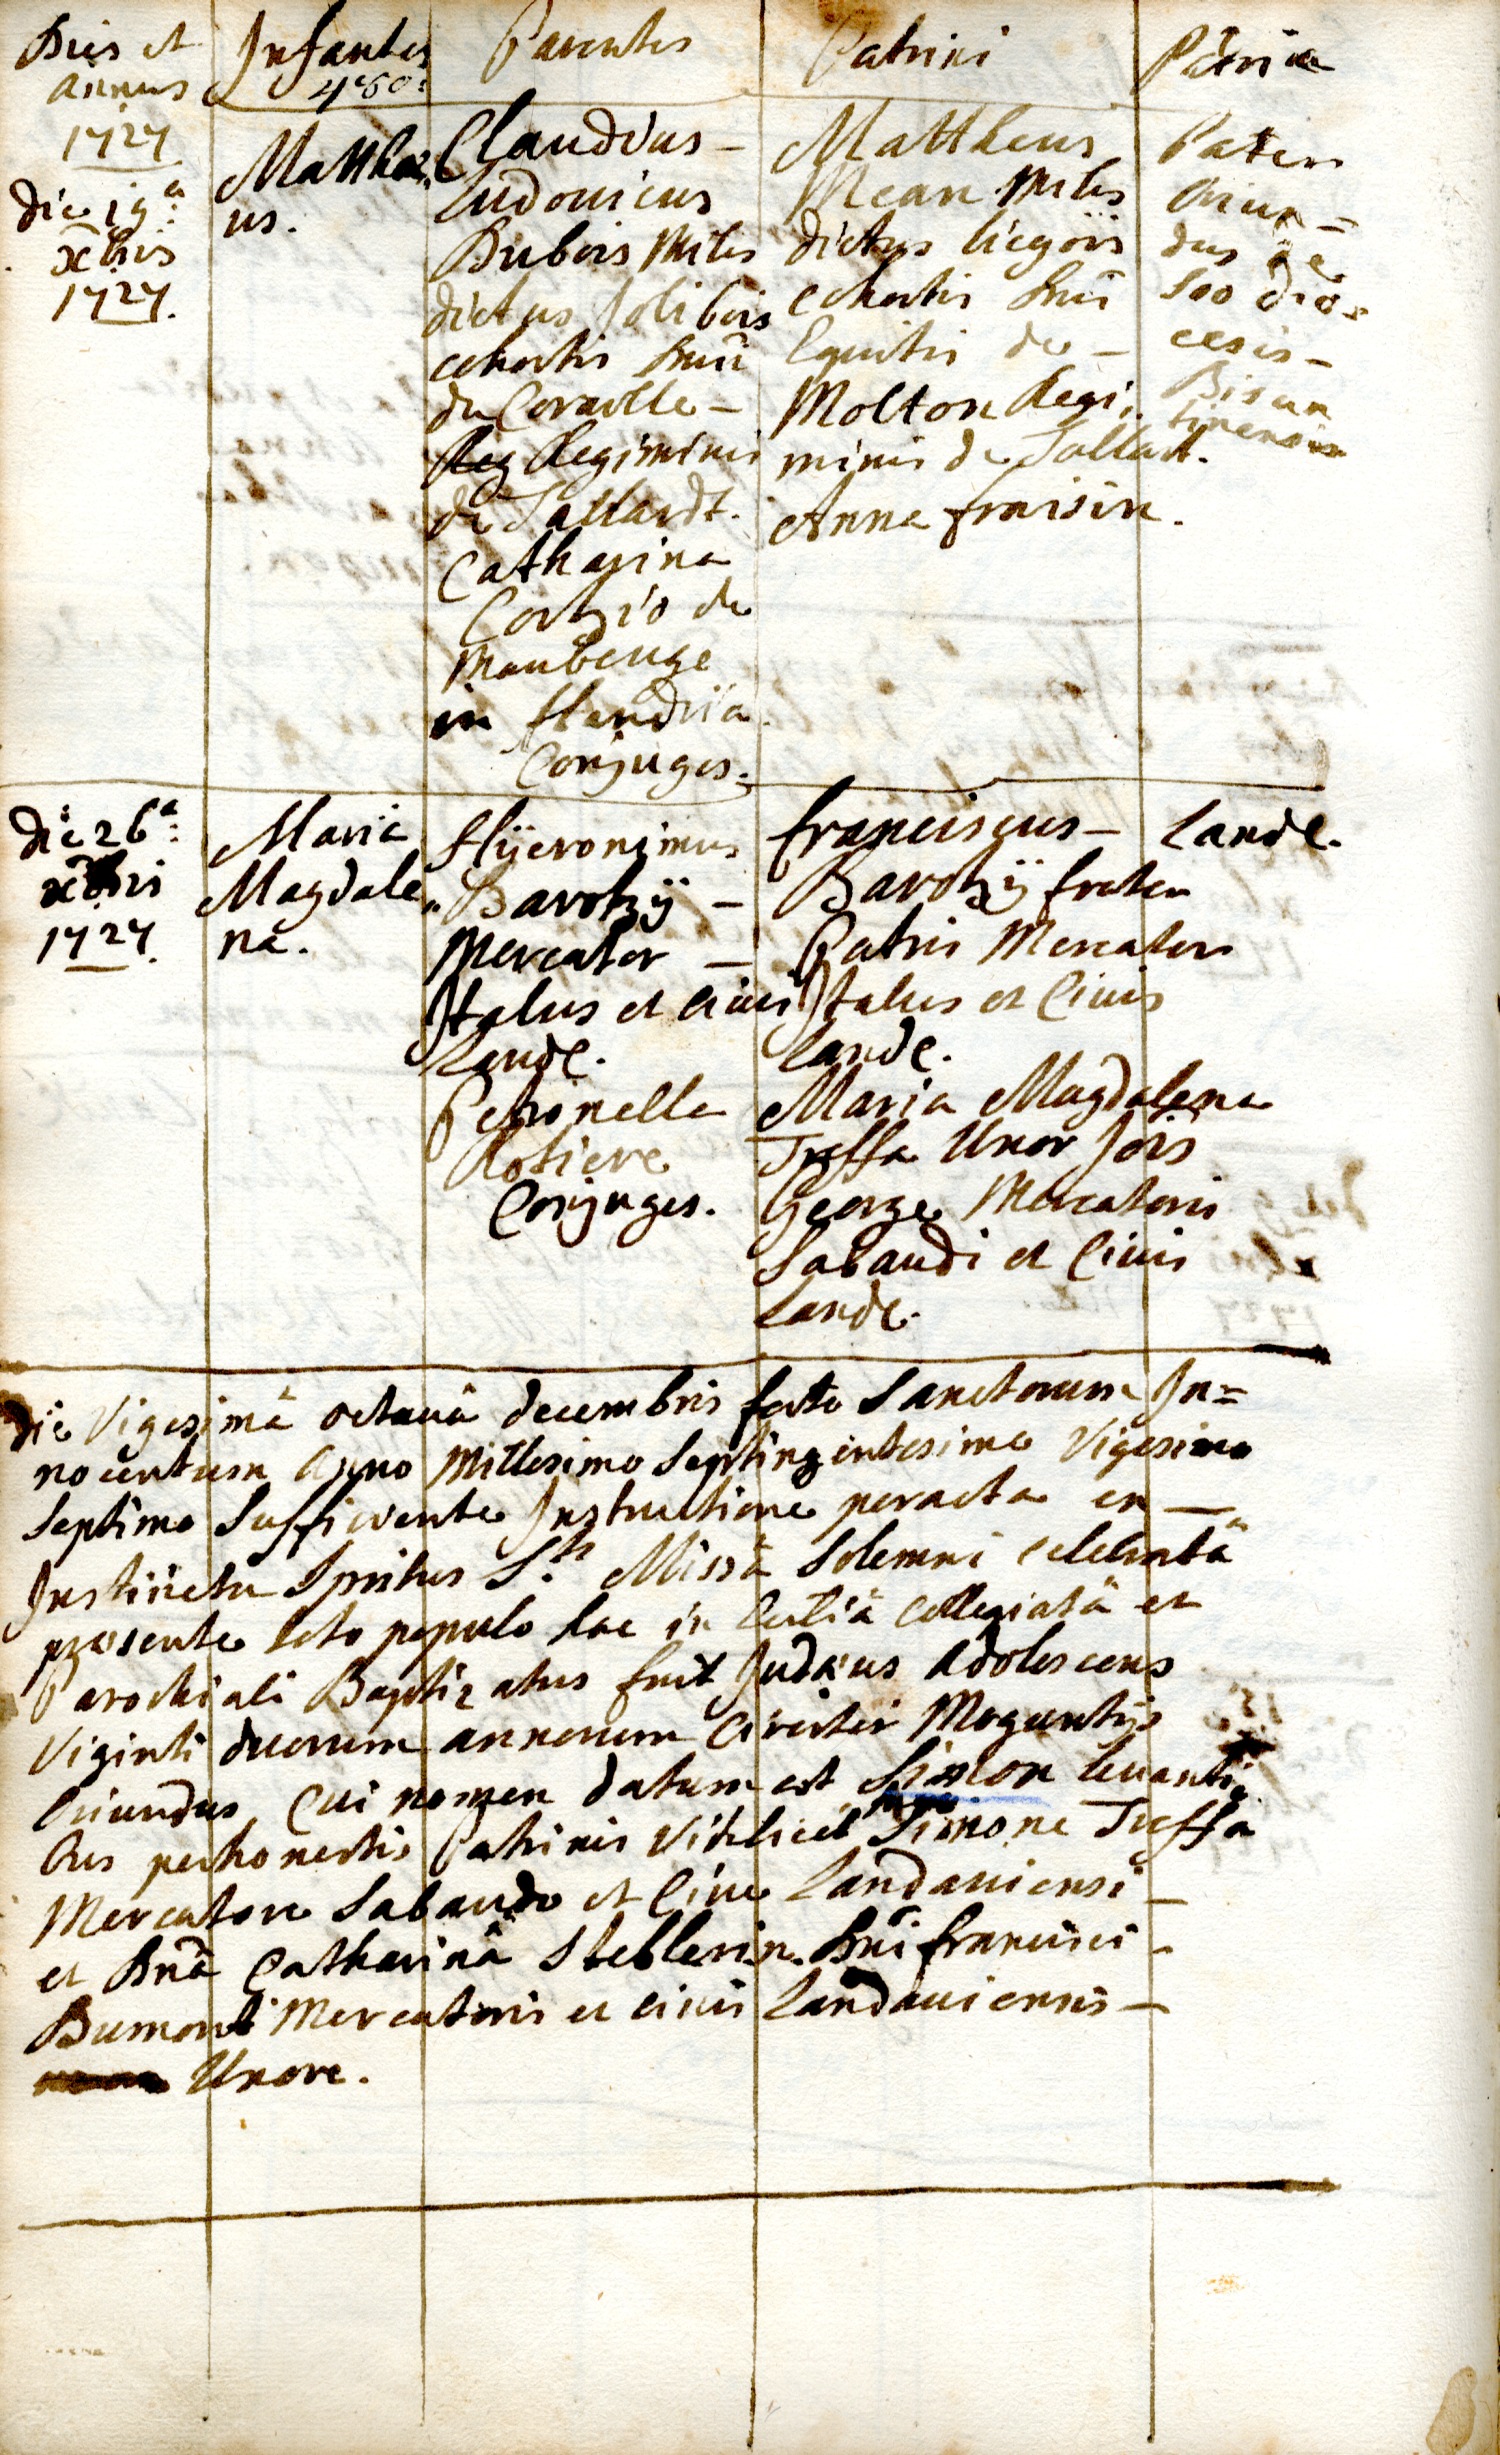 Dies et
annus
1727
Infantes
480:
Parentes
Patrini
Patria
die 19a:
xbris
1727.
Matthæ
us.
Claudius –
Ludovicus
Dubois Miles
dictus Jolibois
cohortis Dni
de Coraolle –
Reg Regiminis
de Tallardt.
Catharina
de
Maubeuge
in Handria
Conjuges.
Mattheus
Mean Miles
dictus liegois
cohortis Dni
Equitis de –
Molton Regi,
minis de Tallart.
Anna fraisin.
Pater
Oriun=
dus de
Soo dioe
cesis –
Bisun
tinensis
die 26a:
xbris
1727.
Maria
Magdale
na.
Hÿeronimus
Barotzÿ –
Mercator –
Italus et civis
Lande.
Petronella
Rotiere
Conjuges.
franciscus –
Barotzij frater
Patris Mercator
Italus et Civis
Lande.
Maria Magdalena
Treffa Uxor Jois
George Mercatoris
Sabaudi et Civis
Lande.
Lande.
die Vigesimâ octavâ decembris festo Sanctorum In=
nocentum Anno Millesimo Septingentesimo Vigesimo
Septimo Sufficiente Instructione peracta ex —
Instinctu Spritus Sti Missâ Solemni celebratâ
præsente toto populo hac in Eccliâ Collegiatâ et
Parochiali Baptizatus fuit Judæus Adolescens
Viginti duorum annorum Circiter Moguntijs
Oriundus, Cui nomen datum est Simon levanti
bus perhonestis Patrinis Videlicet Simone Treffa
Mercatore Sabaudo et Cive Landaviensi –
et Dnâ Catharinâ Steblerin. Dni francisci –
Dumont Mercatoris et civis Landaviensis –
Uxore.